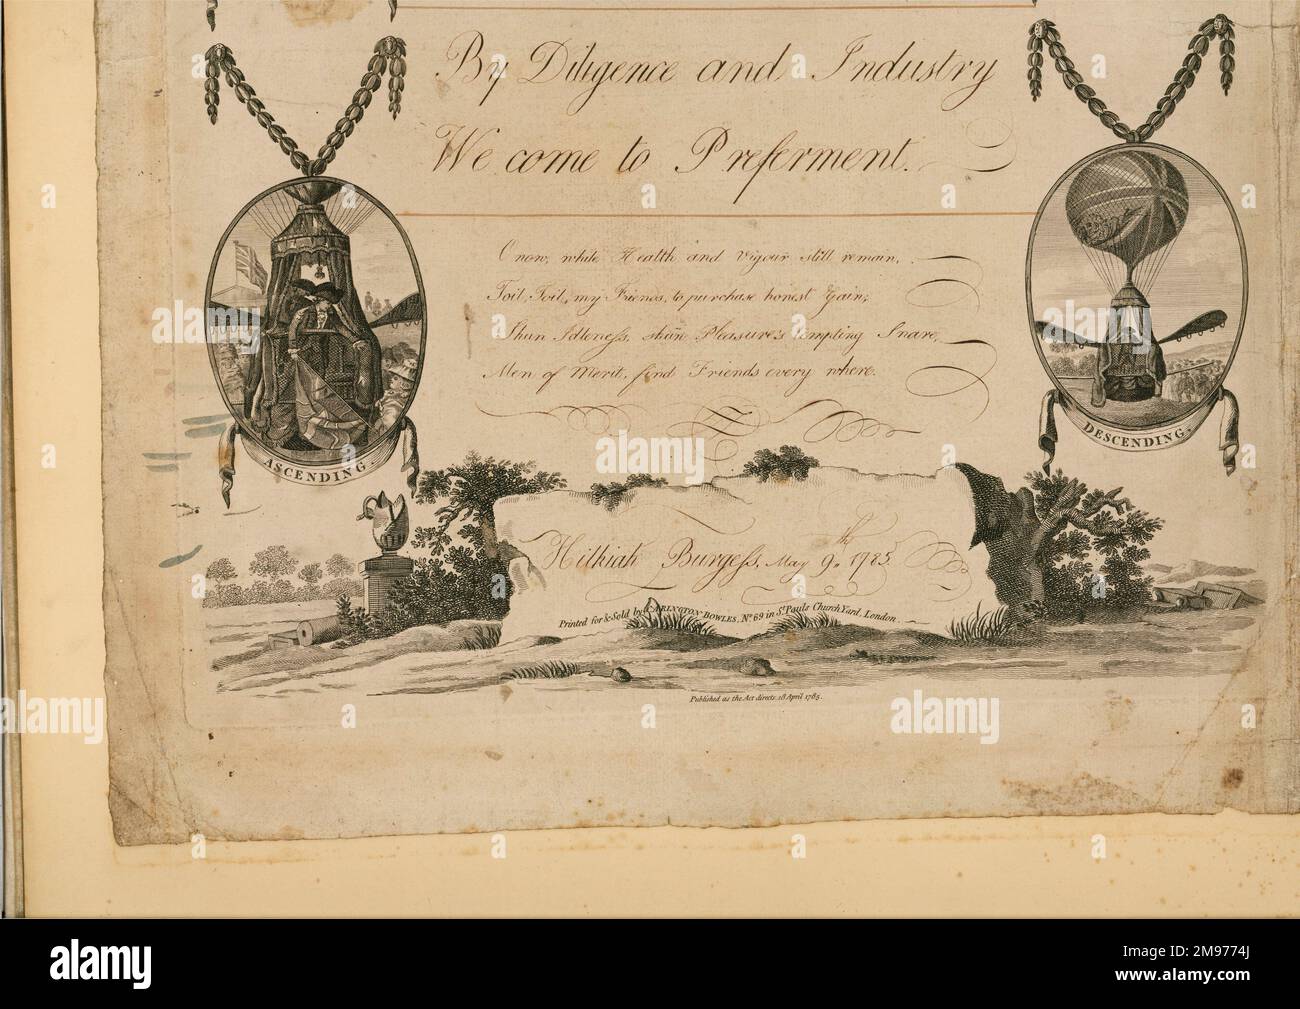 By Diligence and Industry
We come to Preferment.
O now, while Health and Vigour still remain,
Toil, Toil, my Friends, to purchase honest Gain;
Shun Idleness, shun Pleasure's tempting Snare,
Men of Merit, find Friends every where.
ASCENDING.
DESCENDING.
Hilkiah Burgess, May 9th 1785
Printed for & Sold by CARINGTON BOWLES, No. 69 in St. Pauls Church Yard, London.
Published as the Act directs 18 April 1785.
alamy
Image ID: 2M9774J
www.alamy.com